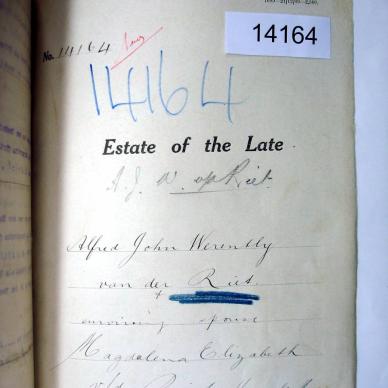 14164
No. 14164
14164
Estate of the Late
A. J. W. v/d Riet
Alfred John Werently
van der Riet
surviving spouse
Magdalena Elizabeth
v/d Riet